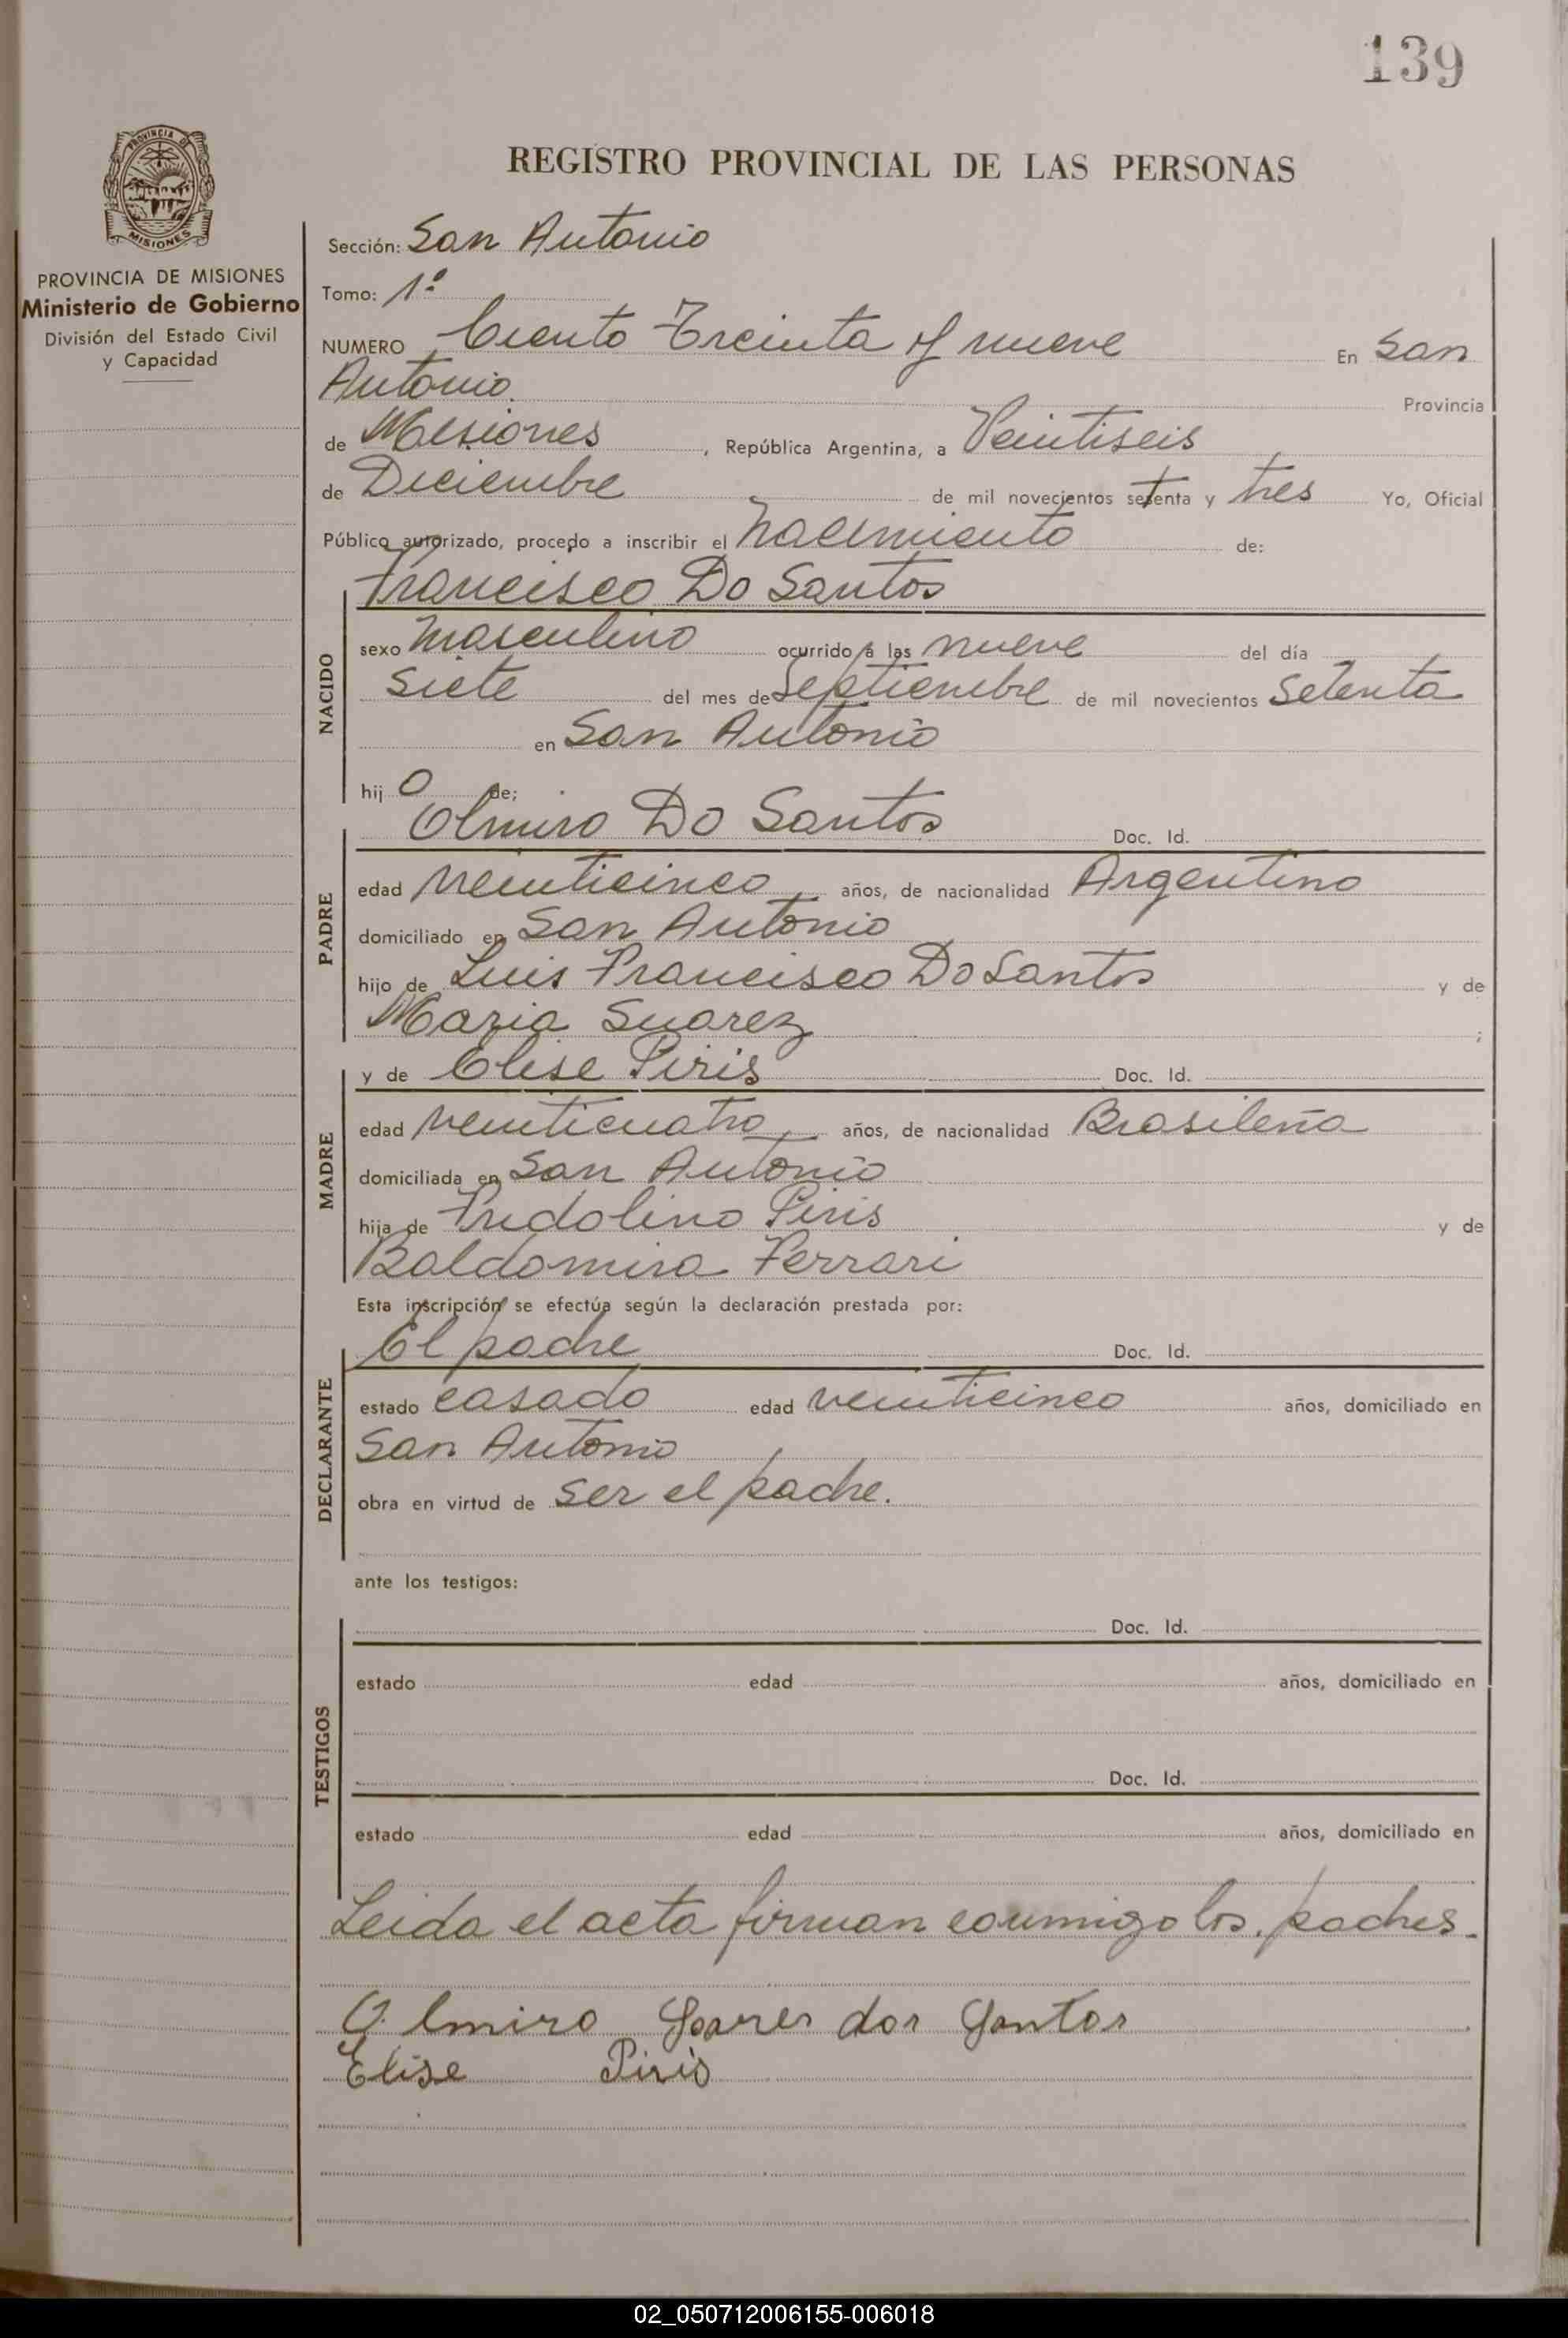 139
PROVINCIA DE
MISIONES
PROVINCIA DE MISIONES
Ministerio de Gobierno
División del Estado Civil
y Capacidad
REGISTRO PROVINCIAL DE LAS PERSONAS
Sección: San Antonio
Tomo: 1º
NUMERO Ciento Treinta y nueve En San
Antonio. Provincia
de Misiones, República Argentina, a Veintiseis
de Diciembre de mil novecientos setenta y tres Yo, Oficial
Público autorizado, procedo a inscribir el nacimiento de:
Francisco Do Santos
NACIDO
sexo masculino ocurrido a las nueve del día
siete del mes de Septiembre de mil novecientos setenta
en San Antonio
hijo de;
Olmiro Do Santos Doc. Id.
PADRE
edad veinticinco años, de nacionalidad Argentino
domiciliado en San Antonio
hijo de Luis Francisco Do Santos y de
Maria Suarez ;
y de Elise Piris Doc. Id.
MADRE
edad veinticuatro años, de nacionalidad Brasileña
domiciliada en San Antonio
hija de Fridolino Piris y de
Baldomira Ferrari
Esta inscripción se efectúa según la declaración prestada por:
El padre Doc. Id.
DECLARANTE
estado casado edad veinticinco años, domiciliado en
San Antonio
obra en virtud de ser el padre.
ante los testigos:
Doc. Id.
TESTIGOS
estado edad años, domiciliado en
Doc. Id.
estado edad años, domiciliado en
Leida el acta firman conmigo los padres.
Olmiro Soares dos Santos
Elise Piris
02_050712006155-006018